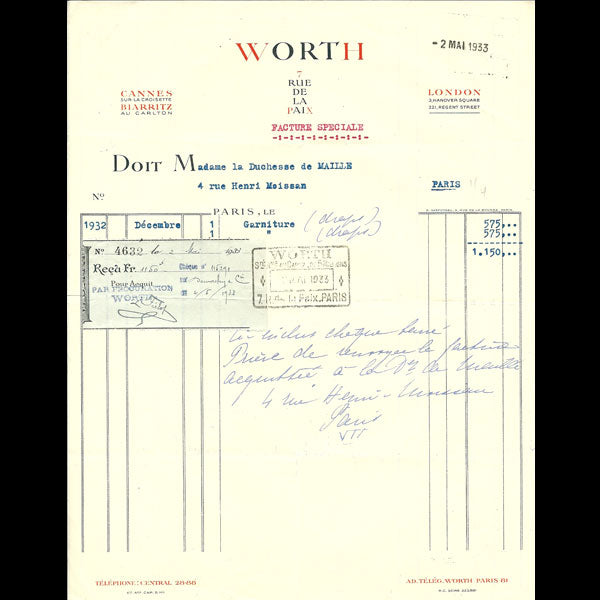 - 2 MAI 1933
WORTH
7
RUE
DE
LA
PAIX
CANNES
SUR LA CROISETTE
BIARRITZ
AU CARLTON
LONDON
3, HANOVER SQUARE
221, REGENT STREET
FACTURE SPECIALE
DOIT Madame la Duchesse de MAILLE
4 rue Henri Moissan PARIS
No
PARIS, LE
1932 Décembre 1 Garniture (draps) 575,..
1 " (draps) 575,..
1.150,..
No 4632 2 Mai
Reçu Fr. 1150
Pour Acquit
PAR PROCURATION
WORTH
Chèque No
2/5/1933
WORTH
1933
7, Rue de la Paix, PARIS
Ci-inclus chèque barré
Prière de renvoyer la facture
acquittée à la Dsse de Maillé
4 rue Henri-Moissan
Paris
VII
TÉLÉPHONE: CENTRAL 28-88
AD. TÉLÉG. WORTH PARIS 81